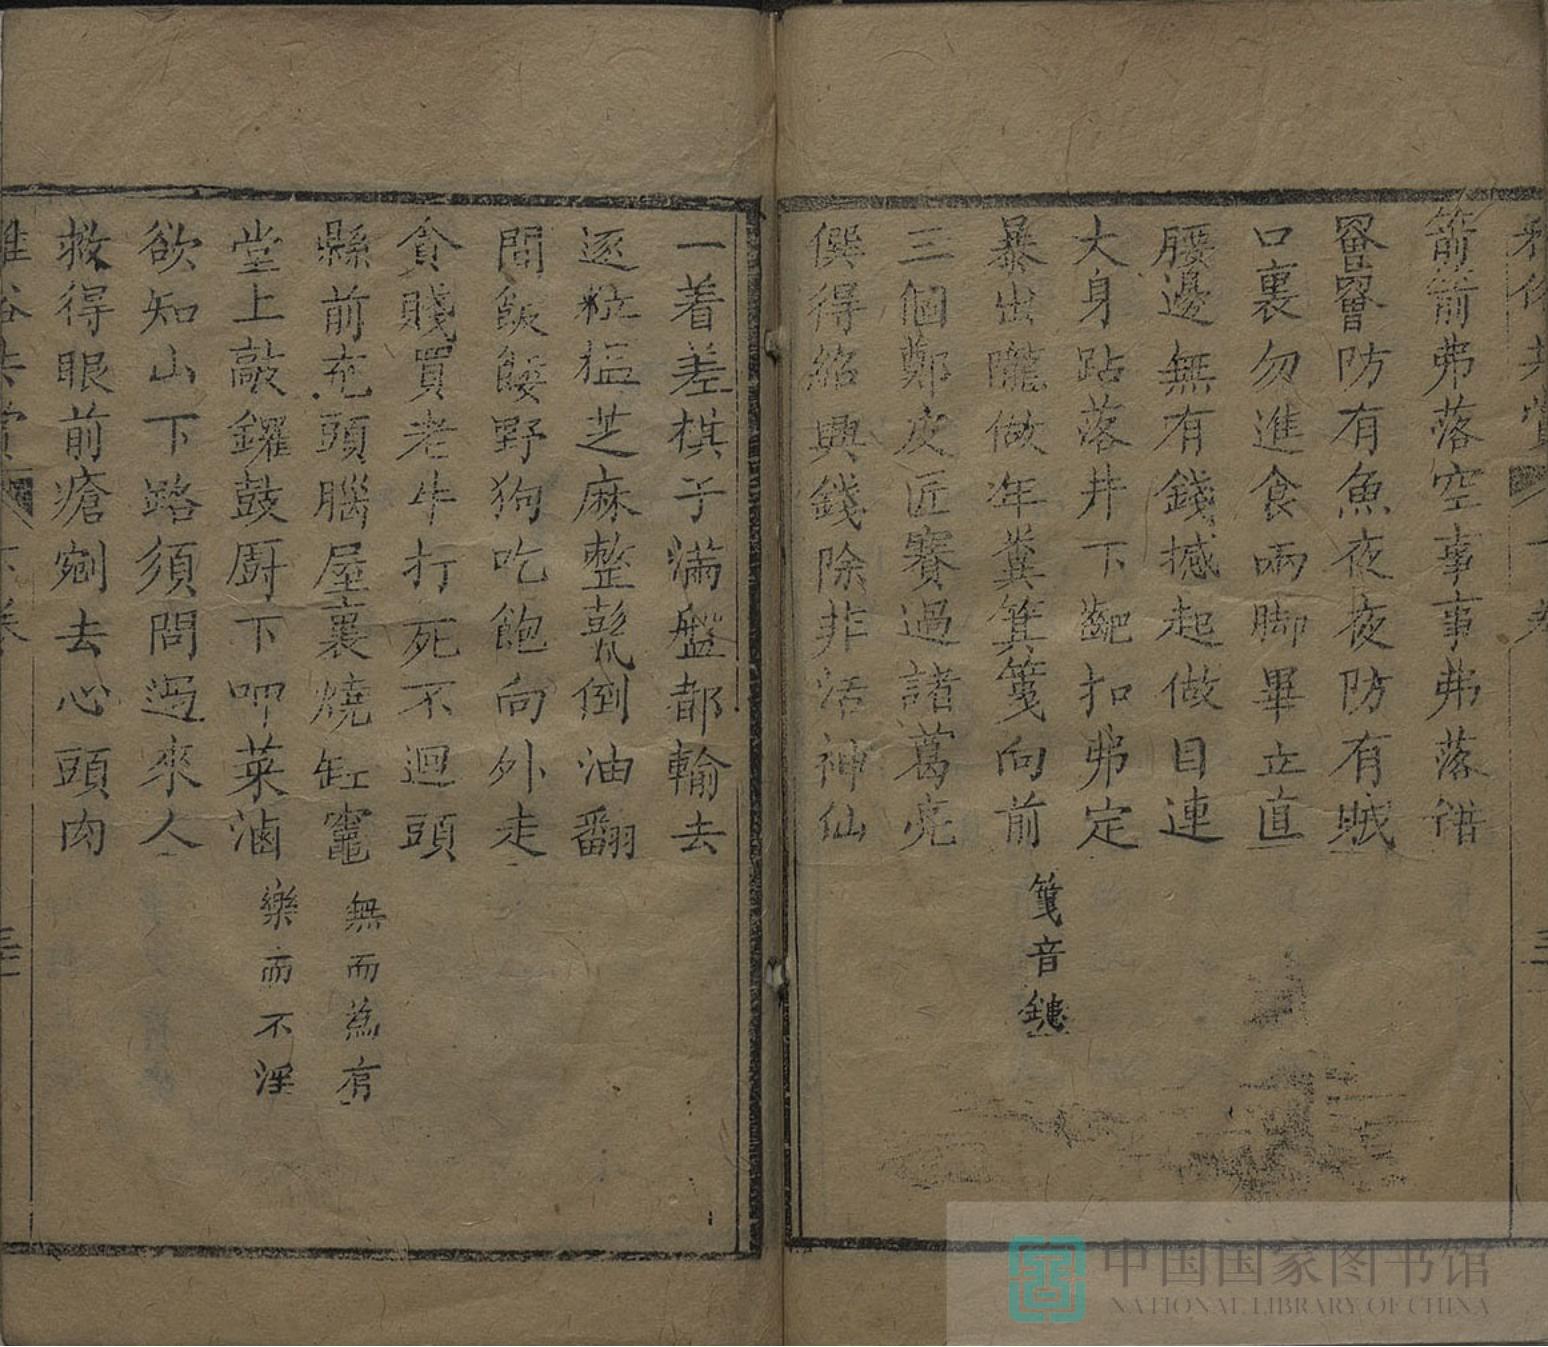 雅俗共賞
下卷
箭箭弗落空事事弗落錯
罾罾防有魚夜夜防有賊
口裏勿進食兩脚畢立直
腰邊無有錢撼起做目連
大身跕落井下齙扣弗定
暴出曨做年糞箕箋向前
箋音鏸
三個鄭皮匠賽過諸葛亮
僎得紹興錢除非活神仙
一着差棋子滿盤都輸去
逐粒揾芝麻整甏倒油翻
間飯餧野狗吃飽向外走
貪賤買老牛打死不迴頭
縣前充頭腦屋裏燒缸竈
無而為有
堂上敲鑼鼓厨下呷菜滷
樂而不淫
欲知山下路須問過來人
救得眼前瘡剜去心頭肉
雅俗共賞
下卷
中国国家图书馆
NATIONAL LIBRARY OF CHINA